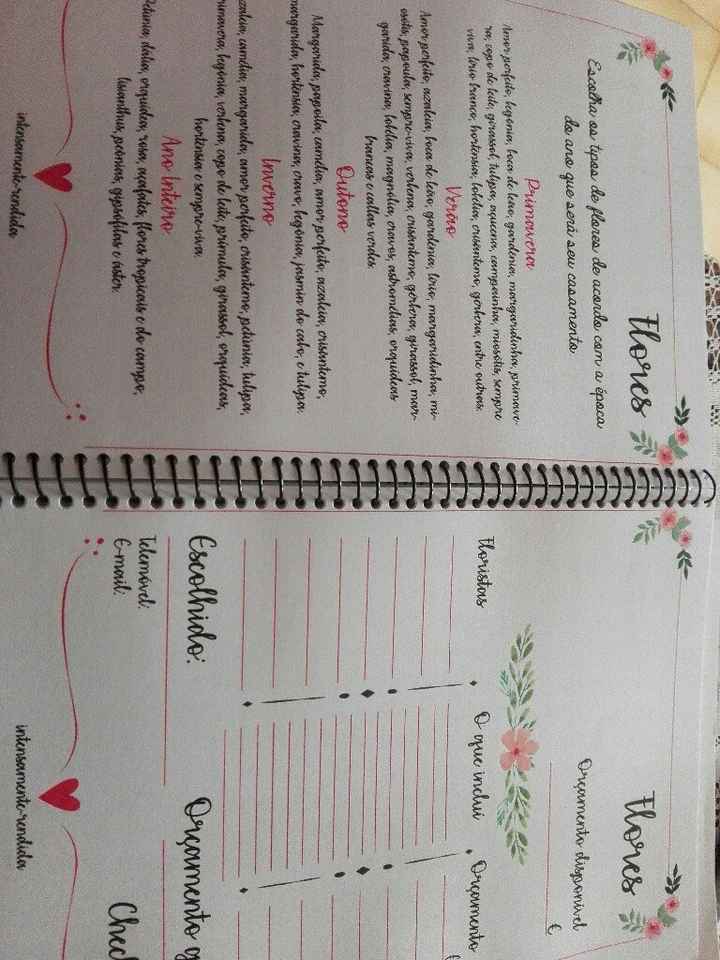 Flores
Escolha os tipos de flores de acordo com a época
do ano que será seu casamento.
Primavera
Amor perfeito, begônia, boca de leão, gardenia, margaridinha, primave-
ra, copo de leite, girassol, tulipa, açucena, campainha, miosótis, sempre
viva, lírio branco, hortensia, lobélia, crisântemo, gérbera, entre outras.
Verão
Amor perfeito, azaleia, boca de leão, gardenia, lírio, margaridinha, mi-
osótis, papoula, sempre-viva, verbena, crisântemo, gérbera, girassol, mar-
garida, cravina, lobélia, magnólia, cravos, astromélias, orquídeas
brancas e callas verdes.
Outono
Margarida, papoila, camélia, amor perfeito, azaleia, crissântemo,
margarida, hortênsia, cravina, cravo, begônia, jasmin do cabo, e tulipa.
Inverno
azaleia, camélia, margarida, amor perfeito, crisântemo, petúnia, tulipa,
rimavera, begônia, verbena, copo de leite, prímula, girassol, orquídeas,
hortênsia e sempre-viva.
Ano Inteiro
Petúnia, dália, orquídea, rosa, açafates, flores tropicais e do campo,
lisianthus, peônias, gypsofilas e áster.
intensamente-rendida
Flores
Orçamento disponível
€
Floristas O que inclui Orçamento
Escolhido: Orçamento g
Telemóvel:
E-mail: Chec
intensamente-rendida